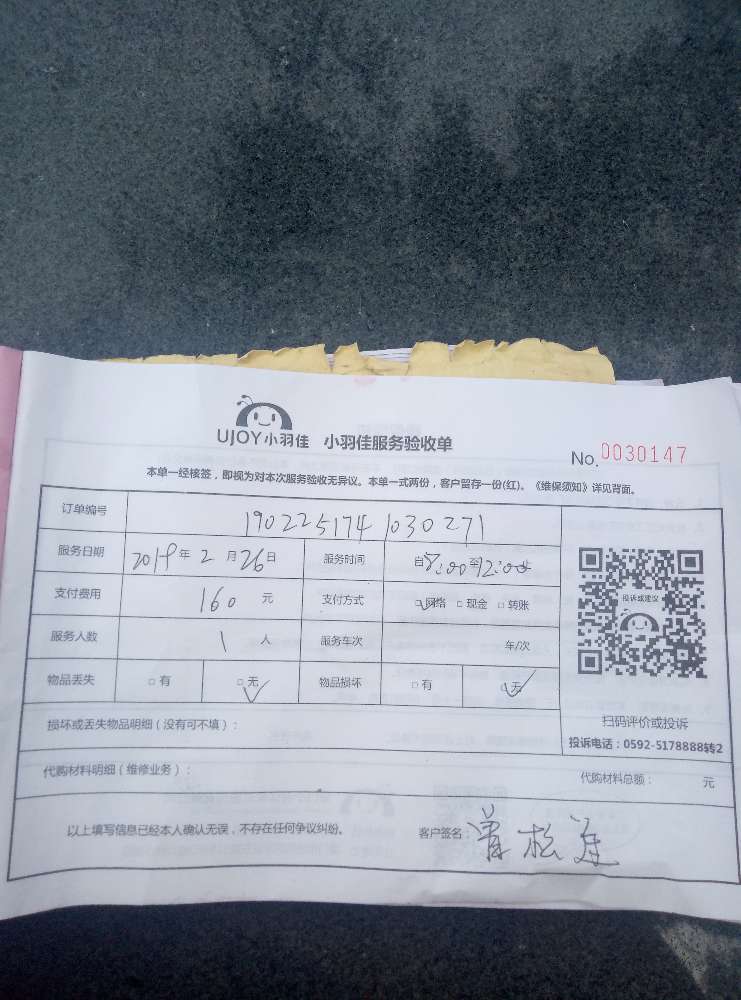 UJOY小羽佳 小羽佳服务验收单
No. 0030147
本单一经核签，即视为对本次服务验收无异议。本单一式两份，客户留存一份(红)。《维保须知》详见背面。
订单编号 1902251741030271
服务日期 2019年2月26日 服务时间 自8:00至12:00
支付费用 160元 支付方式 □网络 □现金 □转账
服务人数 1人 服务车次 车/次
物品丢失 □有 □无 物品损坏 □有 □无
投诉或建议
扫码评价或投诉
投诉电话：0592-5178888转2
损坏或丢失物品明细（没有可不填）：
代购材料明细（维修业务）： 代购材料总额： 元
以上填写信息已经本人确认无误，不存在任何争议纠纷。 客户签名：